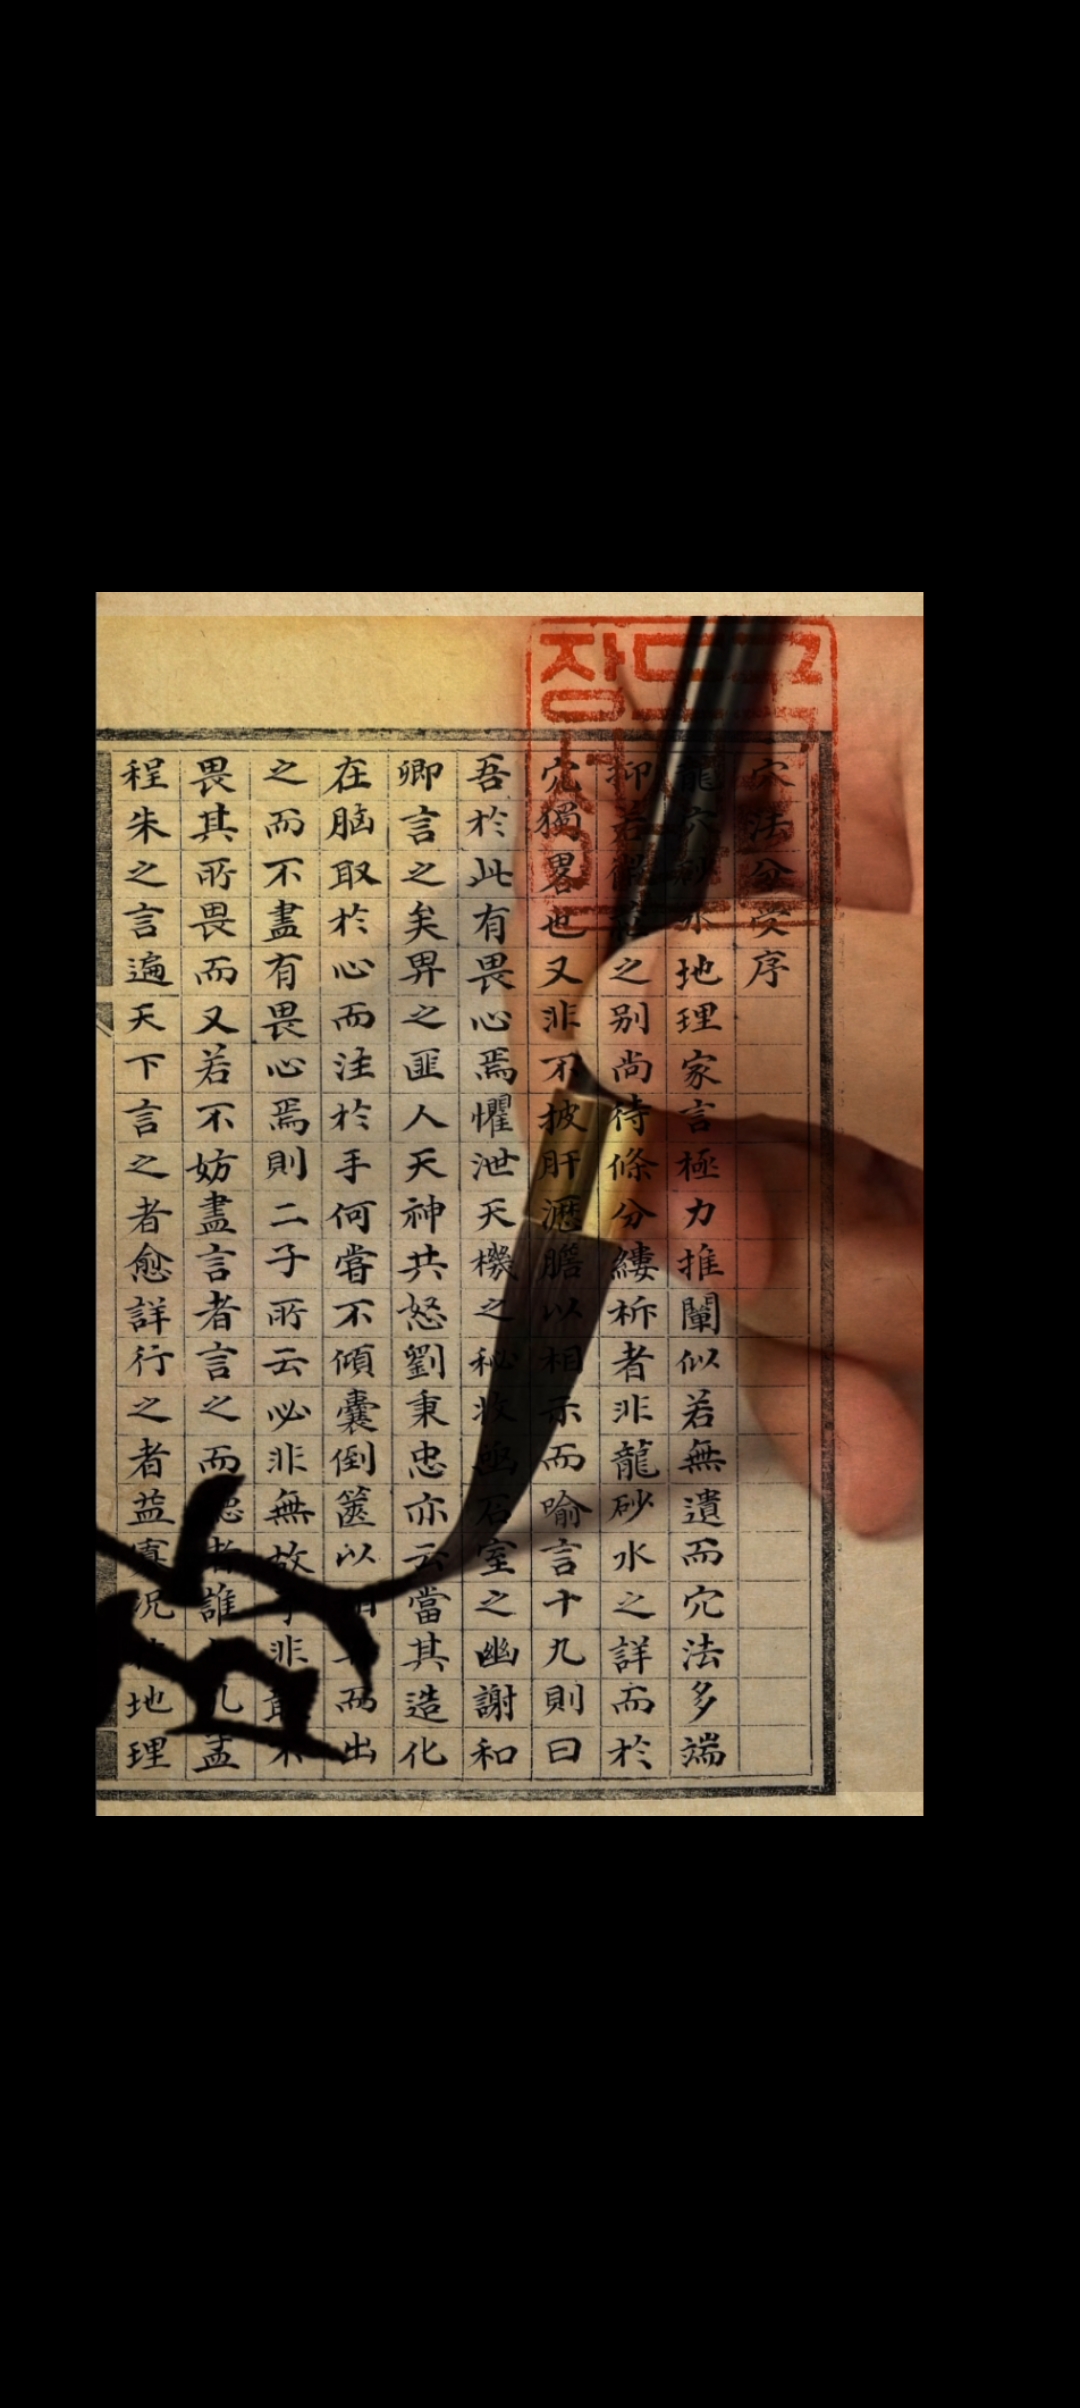 穴法分受序
龍穴砂水地理家言極力推闡似若無遺而穴法多端
抑若之別尚待條分縷析者非龍砂水之詳而於
穴獨畧也又非不披肝瀝膽以相示而喻言十九則曰
吾於此有畏心焉懼泄天機之秘之幽謝和
卿言之矣畀之匪人天神共怒劉秉忠亦云當其造化
在脑取於心而注於手何嘗不傾囊倒篋以而出
之而不盡有畏心焉則二子所云必非無故非
畏其所畏而又若不妨盡言者言之而誰孟
程朱之言遍天下言之者愈詳行之者益寡況地理